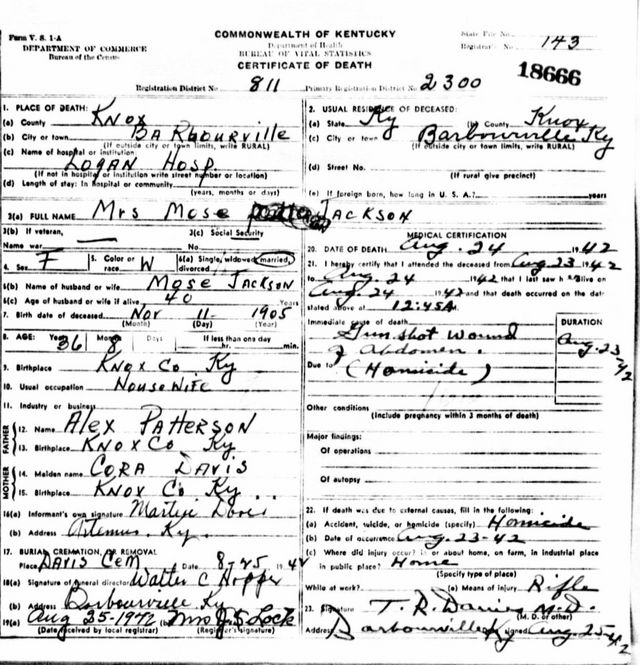 Form V. S. 1-A
DEPARTMENT OF COMMERCE
Bureau of the Census
COMMONWEALTH OF KENTUCKY
Department of Health
BUREAU OF VITAL STATISTICS
CERTIFICATE OF DEATH
State File No.
Registrar's No. 143
18666
Registration District No. 811 Primary Registration District No. 2300
1. PLACE OF DEATH:
(a) County Knox
(b) City or town Barbourville
(If outside city or town limits, write RURAL)
(c) Name of hospital or institution:
Logan Hosp.
(If not in hospital or institution write street number or location)
(d) Length of stay: In hospital or community
(years, months or days)
2. USUAL RESIDENCE OF DECEASED:
(a) State Ky (b) County Knox
(c) City or town Barbourville Ky
(If outside city or town limits, write RURAL)
(d) Street No.
(If rural give precinct)
(e) If foreign born, how long in U. S. A.? years
3(a) FULL NAME Mrs Mose Jackson
3(b) If veteran, 3(c) Social Security
Name war No.
4. Sex F 5. Color or race W 6(a) Single, widowed, married, divorced
6(b) Name of husband or wife Mose Jackson
6(c) Age of husband or wife if alive 40 Years
7. Birth date of deceased Nov 11 - 1905
(Month) (Day) (Year)
8. AGE: Years 36 Months 8 Days If less than one day
hr. min.
9. Birthplace Knox Co. Ky
10. Usual occupation Housewife
11. Industry or business
FATHER
12. Name Alex Patterson
13. Birthplace Knox Co. Ky.
MOTHER
14. Maiden name Cora Davis
15. Birthplace Knox Co. Ky. . .
16(a) Informant's own signature
(b) Address Artemus, Ky.
17. BURIAL, CREMATION, OR REMOVAL
Place Davis Cem Date 8-25 1942
18(a) Signature of funeral director Walter C Hopper
(b) Address Barbourville Ky
19(a) Aug 25-1942 Mrs J. S. Lock
(Date received by local registrar) (Registrar's signature)
MEDICAL CERTIFICATION
20. DATE OF DEATH Aug. 24 1942
21. I hereby certify that I attended the deceased from Aug 23 1942
to Aug. 24 1942 that I last saw h alive on
Aug. 24 1942 and that death occurred on the date
stated above at 12:45A
Immediate cause of death
Gun shot wound
of Abdomen.
Due to (Homicide)
DURATION
Aug-23-42
Other conditions
(Include pregnancy within 3 months of death)
Major findings:
Of operations
Of autopsy
22. If death was due to external causes, fill in the following:
(a) Accident, suicide, or homicide (specify) Homicide
(b) Date of occurrence Aug-23-42
(c) Where did injury occur? in or about home, on farm, in industrial place
in public place? Home
(Specify type of place)
While at work? (e) Means of injury Rifle
23. Signature T. R. Davies M.D.
(M. D. or other)
Address Barbourville Ky signed Aug-25-42